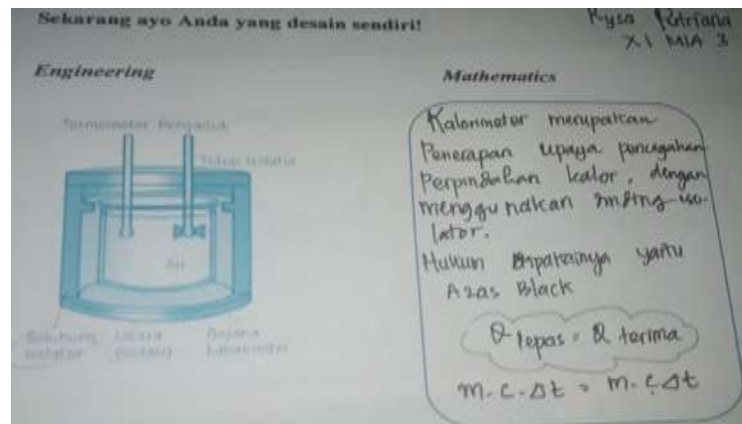 Sekarang ayo Anda yang desain sendiri!
Rysa Putriana
XI MIA 3
Engineering
Termometer Pengaduk
Tutup isolator
Air
Selubung isolator
Udara (isolasi)
Bejana kalorimeter
Mathematics
Kalorimeter merupakan
Penerapan upaya pencegahan
Perpindahan kalor, dengan
menggunakan dinding iso-
lator.
Hukum yaitu
Azas Black
Q lepas = Q terima
m. c. Δt = m. c. Δt